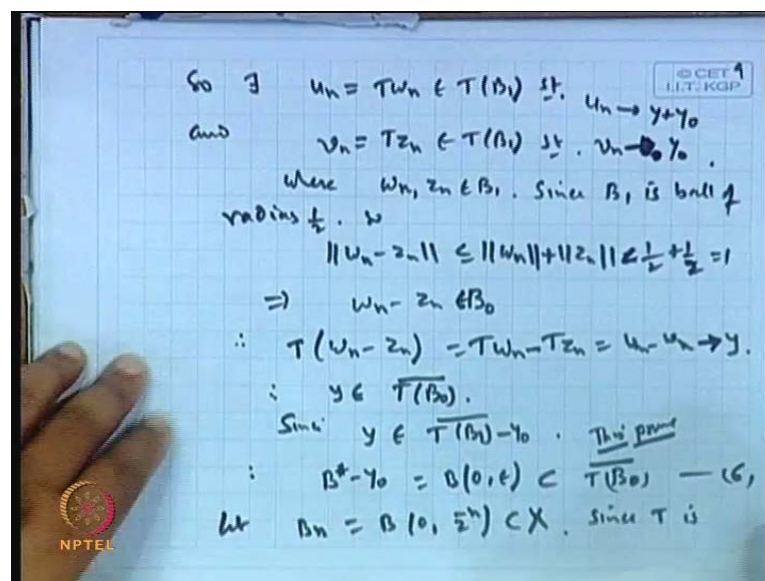 So ∃ uₙ = Twₙ ∈ T(B₁) st. uₙ → y+y₀
© CET
I.I.T. KGP
9
and vₙ = Tzₙ ∈ T(B₁) st. vₙ → y₀.
where wₙ, zₙ ∈ B₁. Since B₁ is ball of
radius ½. so
||wₙ - zₙ|| ≤ ||wₙ|| + ||zₙ|| < ½ + ½ = 1
⇒ wₙ - zₙ ∈ B₀
∴ T(wₙ - zₙ) = Twₙ - Tzₙ = uₙ - vₙ → y.
∴ y ∈ \overline{T(B₀)}.
Since y ∈ \overline{T(B₁)} - y₀. This prove
∴ B* - y₀ = B(0, ε) ⊂ \overline{T(B₀)} — (6)
let Bₙ = B(0, 2⁻ⁿ) ⊂ X. Since T is
NPTEL